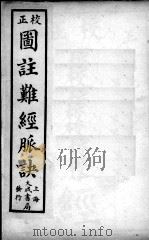 校正
圖註難經脈訣
上海
大成書局
發行